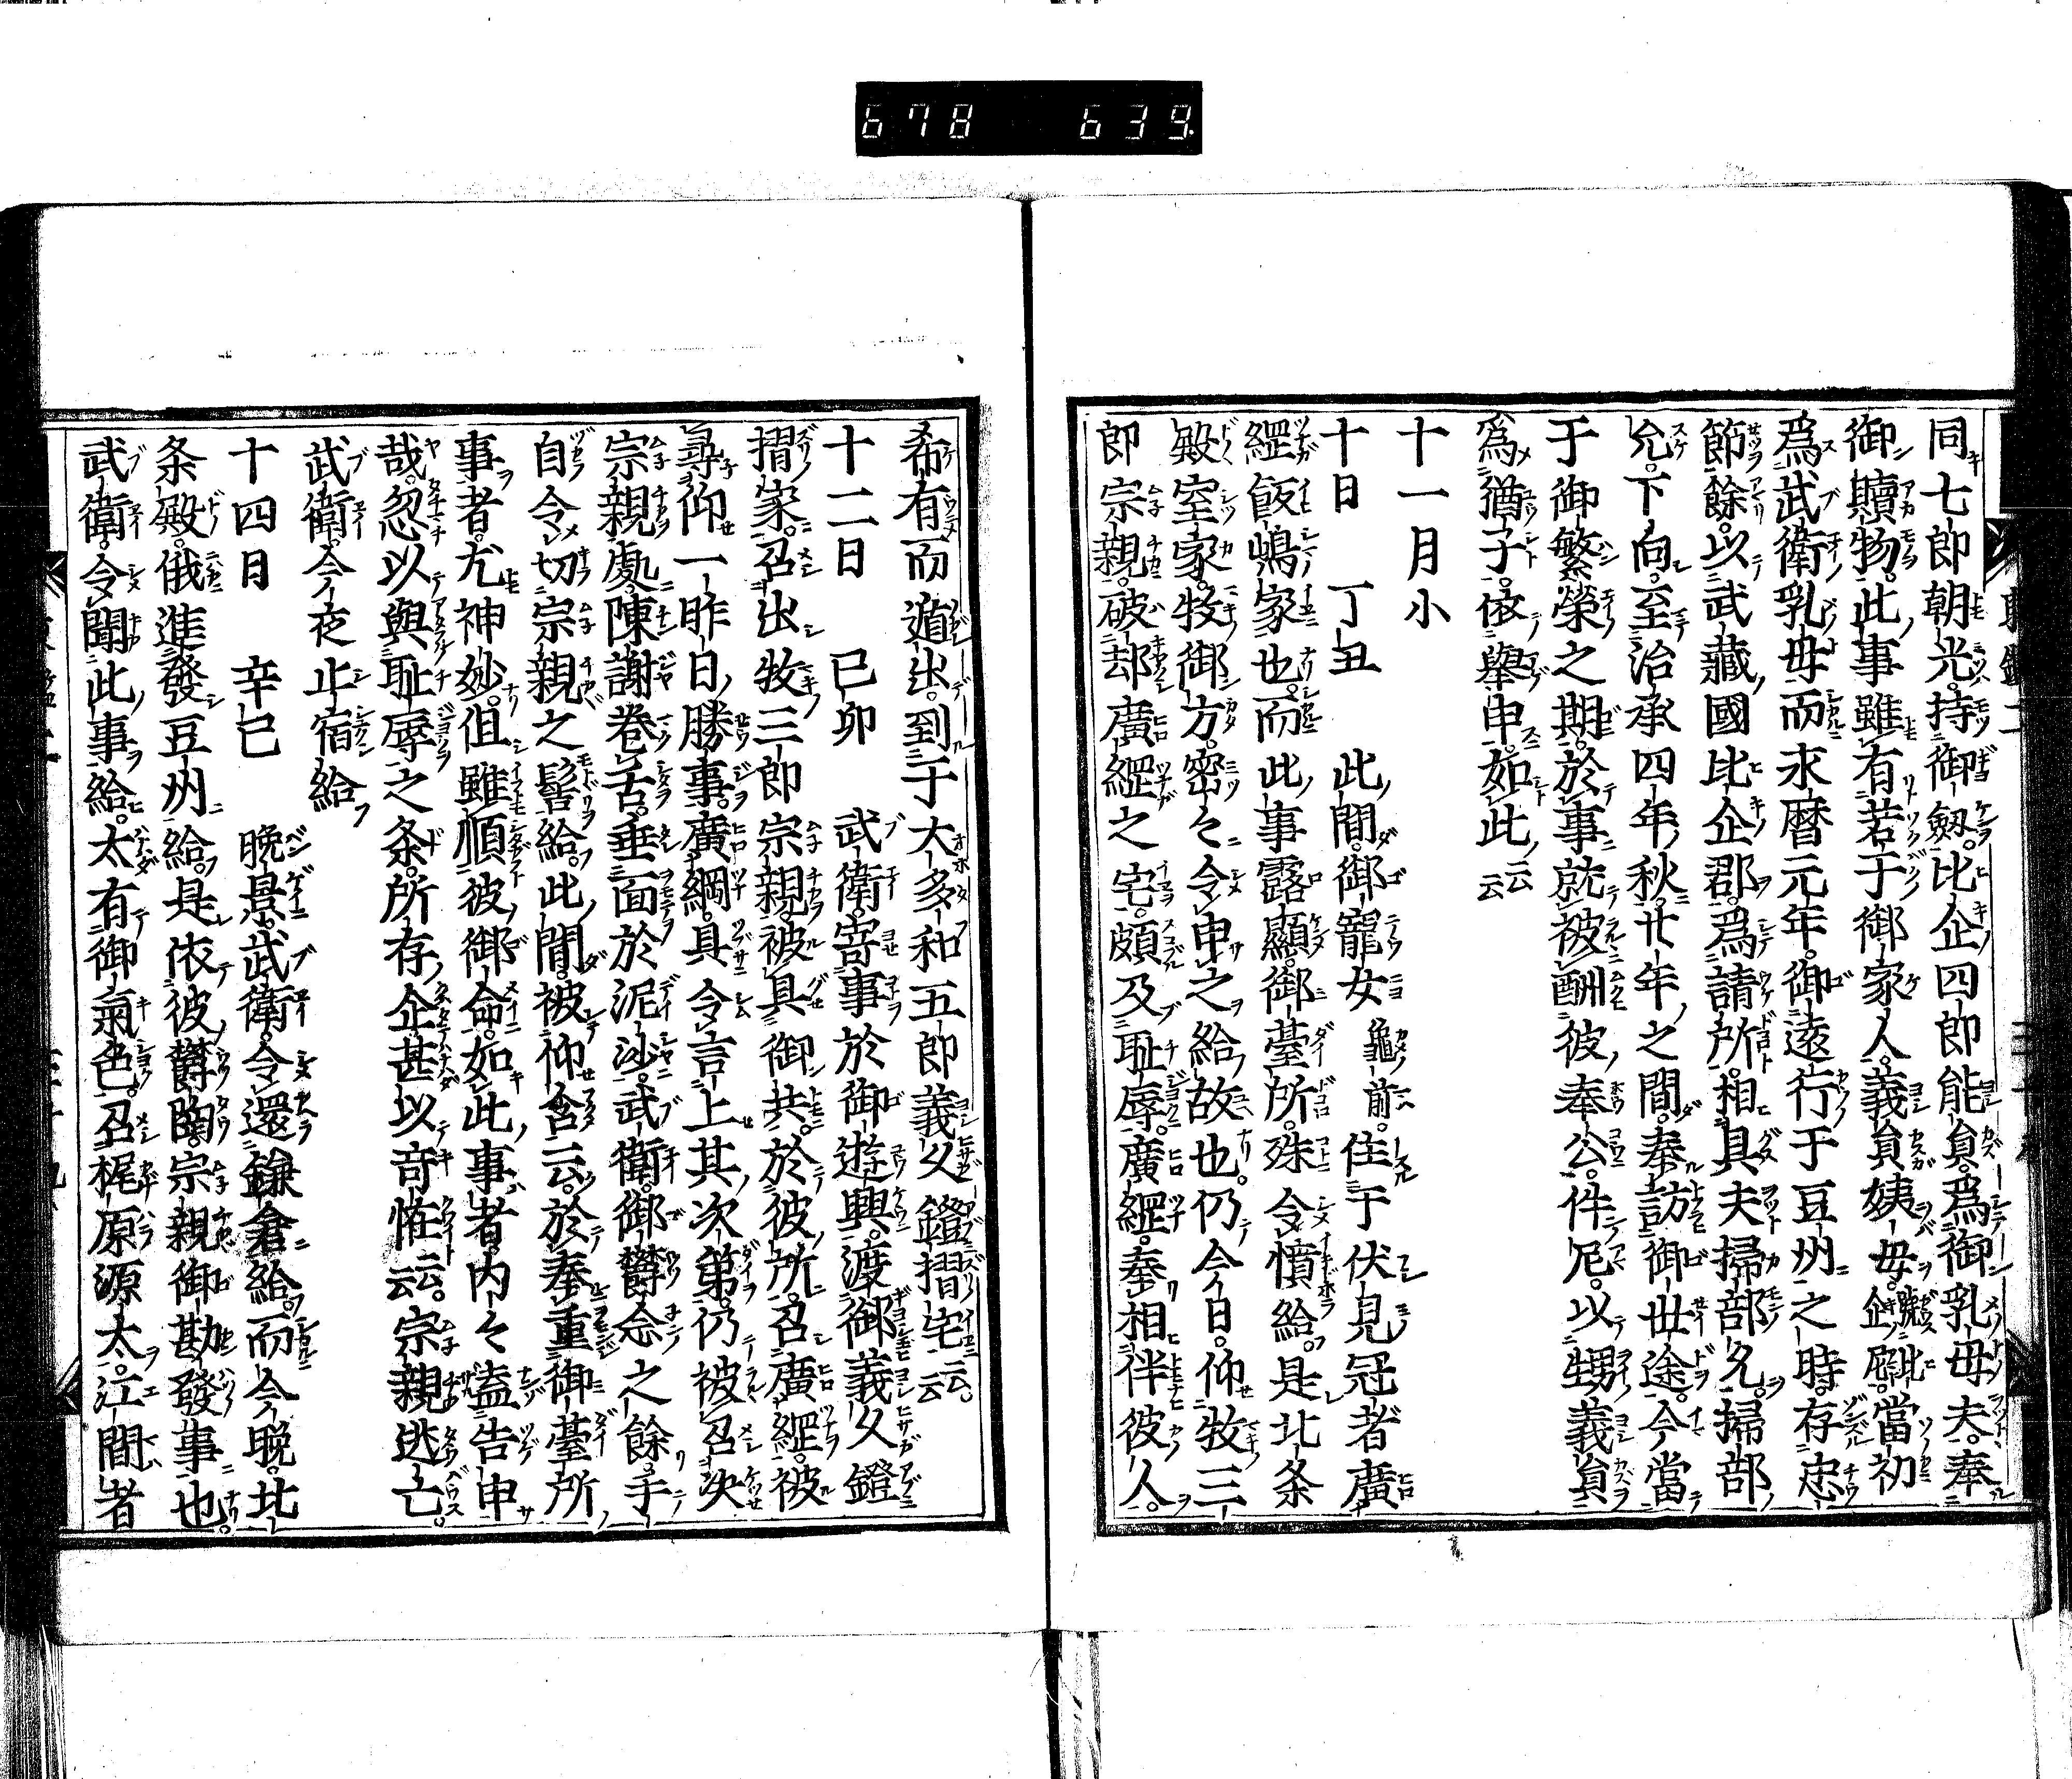 678 639
同七郎朝光。持御劔。比企四郎能員。爲御乳母夫。奉
御贖物。此事雖有若干御家人。義員姨母號比企尼。當初
爲武衛乳母。而永暦元年。御遠行于豆州之時。存忠
節餘。以武藏國比企郡。爲請所。相具夫掃部允。掃部
允。下向。至治承四年秋。廿年之間。奉訪御世途。今當
于御繁榮之期。於事就被酬彼奉公。件尼。以甥義員
爲猶子。依擧申。如此云云
十一月小
十日 丁丑 此間。御寵女龜前。住于伏見冠者廣
綱飯嶋家也。而此事露顯。御臺所。殊令憤給。是北条
殿室家。牧御方。密々令申之給故也。仍今日。仰牧三
郎宗親。破却廣綱之宅。頗及耻辱。廣綱。奉相伴彼人。
希有而遁出。到于大多和五郎義久鐙摺宅云云。
十二日 己卯 武衛。寄事於御遊興。渡御義久鐙
摺家。召出牧三郎宗親。被具御共。於彼所。召廣綱。被
尋仰一昨日勝事。廣綱。具令言上其次第。仍被召决
宗親處。陳謝卷舌。垂面於泥沙。武衛。御欝念之餘。手
自令切宗親之髻給。此間。被仰含云。於奉重御臺所
事者。尤神妙。但雖順彼御命。如此事者。内々盍告申
哉。忽以與耻辱之条。所存企。甚以奇恠云云。宗親逃亡。
武衛。今夜止宿給
十四日 辛巳 晩景。武衛。令還鎌倉給。而今晩。北
条殿。俄進發豆州給。是依彼欝陶。宗親御勘發事也。
武衛。令聞此事給。太有御氣色。召梶原源太。江間者